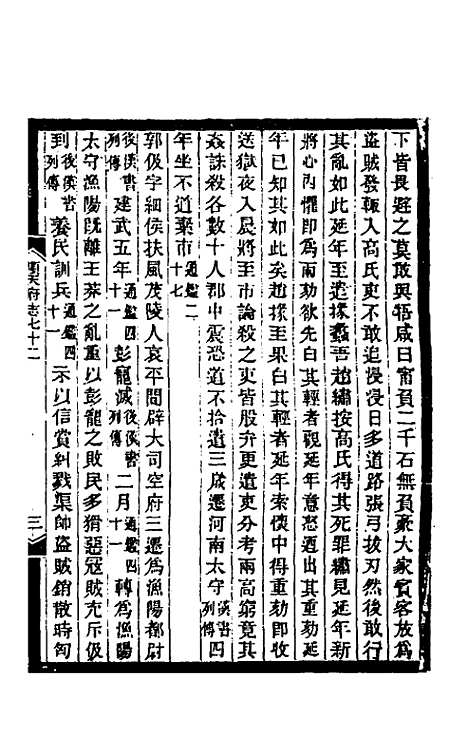 下皆畏避之莫敢與啎咸曰甯負二千石無負豪大家賓客放為
盜賊發輒入高氏吏不敢追浸浸日多道路張弓拔刃然後敢行
其亂如此延年至遣掾蠡吾趙繡按高氏得其死罪繡見延年新
將心內懼卽為兩劾欲先白其輕者觀延年意怒迺出其重劾延
年已知其如此矣趙掾至果白其輕者延年索懷中得重劾卽收
送獄夜入晨將至市論殺之吏皆股弁更遣吏分考兩高窮竟其
姦誅殺各數十人郡中震恐道不拾遺三歲遷河南太守漢書列傳四
年坐不道棄市通鑑二十七
郭伋字細侯扶風茂陵人哀平間辟大司空府三遷為漁陽都尉
後漢書列傳建武五年通鑑四十一彭寵滅後漢書列傳二月通鑑四十一轉為漁陽
太守漁陽旣離王莽之亂重以彭寵之敗民多猾惡寇賊充斥伋
到後漢書列傳養民訓兵通鑑四十一示以信賞糾戮渠帥盜賊銷散時匈
順天府志七十二
三